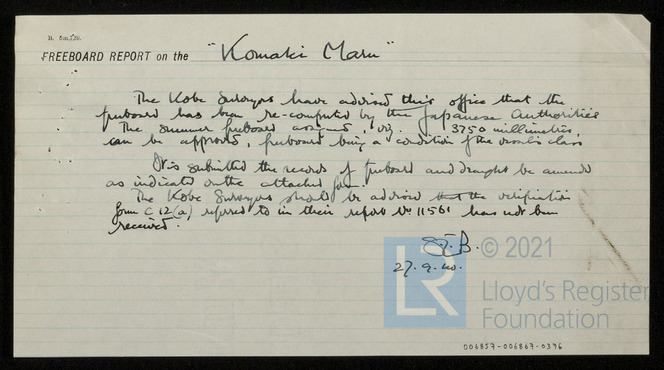 FREEBOARD REPORT on the "Komaki Maru"
The Kobe Surveyors have advised this office that the
freeboard has been re-computed by the Japanese Authorities
The summer freeboard assigned, viz. 3750 millimetres,
can be approved, freeboard being a condition of the vessel's class
It is submitted the records of freeboard and draught be amended
as indicated on the attached form.
The Kobe Surveyors should be advised that the verification
form C 12(a) referred to in their report No 11561 has not been
received.
27.9.40.
© 2021
LR
Lloyd's Register
Foundation
006857-006867-0396